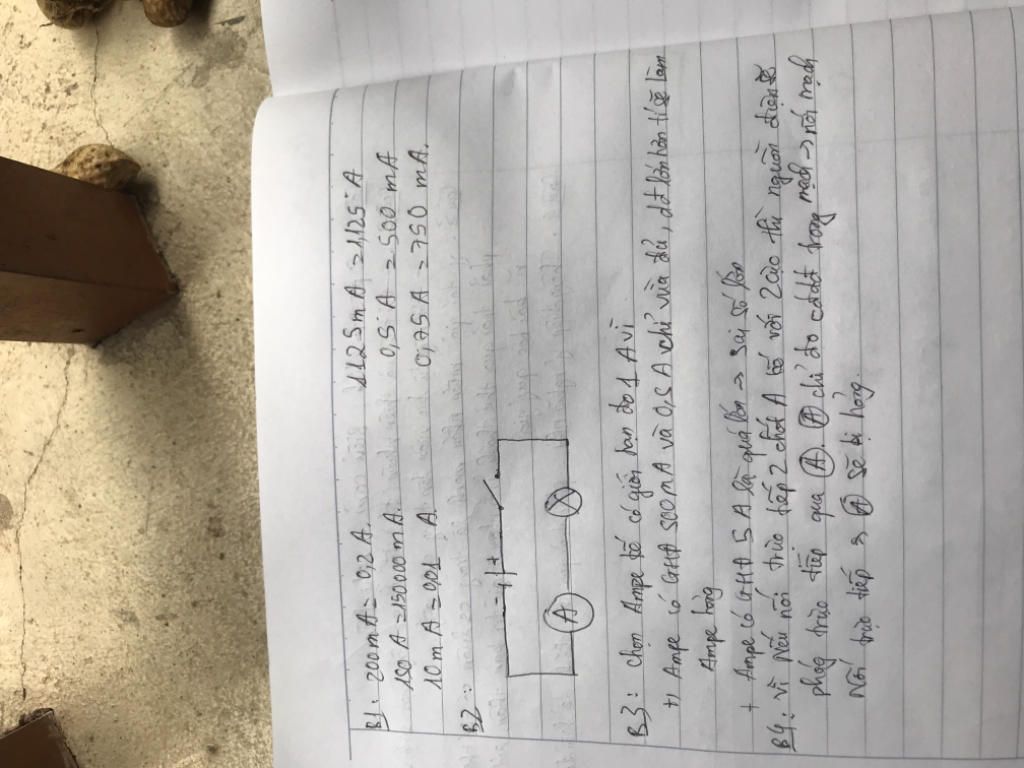 B1: 200mA = 0,2 A. 1125mA = 1,125 A
150 A = 150000 mA. 0,5 A = 500 mA
10 mA = 0,01 A 0,75A = 750 mA.
B2:
- +
A
B3: Chọn Ampe kế có giới hạn đo 1 A vì
+) Ampe có GHĐ 500mA và 0,5 A chỉ vừa đủ, dđ lớn hơn sẽ làm
Ampe hỏng
+ Ampe có GHĐ 5 A là quá lớn => sai số lớn
B4: vì Nếu nối trực tiếp 2 chốt A kế với 2 cực thì nguồn điện sẽ
phóng trực tiếp qua A. A chỉ đo cđdđ trong mạch -> nối mạch
Nối trực tiếp A sẽ bị hỏng